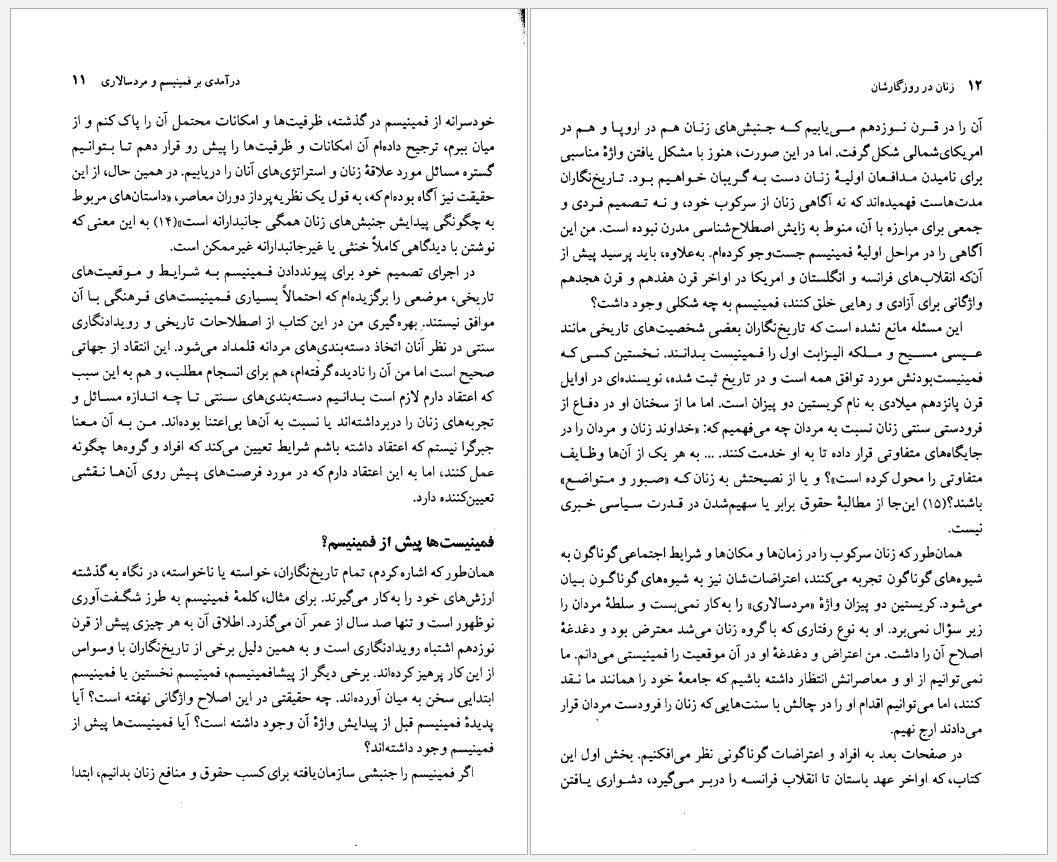 درآمدی بر فمینیسم و مردسالاری ۱۱
خودسرانه از فمینیسم در گذشته، ظرفیت‌ها و امکانات محتمل آن را پاک کنم و از
میان ببرم، ترجیح داده‌ام آن امکانات و ظرفیت‌ها را پیش رو قرار دهم تا بتوانیم
گستره مسائل مورد علاقهٔ زنان و استراتژی‌های آنان را دریابیم. در همین حال، از این
حقیقت نیز آگاه بوده‌ام که، به قول یک نظریه‌پرداز دوران معاصر، «داستان‌های مربوط
به چگونگی پیدایش جنبش‌های زنان همگی جانبدارانه است»(۱۴) به این معنی که
نوشتن با دیدگاهی کاملاً خنثی یا غیرجانبدارانه غیرممکن است.
در اجرای تصمیم خود برای پیونددادن فمینیسم به شرایط و موقعیت‌های
تاریخی، موضعی را برگزیده‌ام که احتمالاً بسیاری فمینیست‌های فرهنگی با آن
موافق نیستند. بهره‌گیری من در این کتاب از اصطلاحات تاریخی و رویدادنگاری
سنتی در نظر آنان اتخاذ دسته‌بندی‌های مردانه قلمداد می‌شود. این انتقاد از جهاتی
صحیح است اما من آن را نادیده گرفته‌ام، هم برای انسجام مطلب، و هم به این سبب
که اعتقاد دارم لازم است بدانیم دسته‌بندی‌های سنتی تا چه اندازه مسائل و
تجربه‌های زنان را دربرداشته‌اند یا نسبت به آن‌ها بی‌اعتنا بوده‌اند. من به آن معنا
جبرگرا نیستم که اعتقاد داشته باشم شرایط تعیین می‌کند که افراد و گروه‌ها چگونه
عمل کنند، اما به این اعتقاد دارم که در مورد فرصت‌های پیش روی آن‌ها نقشی
تعیین‌کننده دارد.
فمینیست‌ها پیش از فمینیسم؟
همان‌طور که اشاره کردم، تمام تاریخ‌نگاران، خواسته یا ناخواسته، در نگاه به گذشته
ارزش‌های خود را به‌کار می‌گیرند. برای مثال، کلمهٔ فمینیسم به طرز شگفت‌آوری
نوظهور است و تنها صد سال از عمر آن می‌گذرد. اطلاق آن به هر چیزی پیش از قرن
نوزدهم اشتباه رویدادنگاری است و به همین دلیل برخی از تاریخ‌نگاران با وسواس
از این کار پرهیز کرده‌اند. برخی دیگر از پیشافمینیسم، فمینیسم نخستین یا فمینیسم
ابتدایی سخن به میان آورده‌اند. چه حقیقتی در این اصلاح واژگانی نهفته است؟ آیا
پدیدهٔ فمینیسم قبل از پیدایش واژهٔ آن وجود داشته است؟ آیا فمینیست‌ها پیش از
فمینیسم وجود داشته‌اند؟
اگر فمینیسم را جنبشی سازمان‌یافته برای کسب حقوق و منافع زنان بدانیم، ابتدا
۱۲ زنان در روزگارشان
آن را در قرن نوزدهم می‌یابیم که جنبش‌های زنان هم در اروپا و هم در
امریکای‌شمالی شکل‌گرفت. اما در این صورت، هنوز با مشکل یافتن واژهٔ مناسبی
برای نامیدن مدافعان اولیهٔ زنان دست به گریبان خواهیم بود. تاریخ‌نگاران
مدت‌هاست فهمیده‌اند که نه آگاهی زنان از سرکوب خود، و نه تصمیم فردی و
جمعی برای مبارزه با آن، منوط به زایش اصطلاح‌شناسی مدرن نبوده است. من این
آگاهی را در مراحل اولیهٔ فمینیسم جست‌وجو کرده‌ام. به‌علاوه، باید پرسید پیش از
آن‌که انقلاب‌های فرانسه و انگلستان و امریکا در اواخر قرن هفدهم و قرن هجدهم
واژگانی برای آزادی و رهایی خلق کنند، فمینیسم به چه شکلی وجود داشت؟
این مسئله مانع نشده است که تاریخ‌نگاران بعضی شخصیت‌های تاریخی مانند
عیسی مسیح و ملکه الیزابت اول را فمینیست بدانند. نخستین کسی که
فمینیست‌بودنش مورد توافق همه است و در تاریخ ثبت شده، نویسنده‌ای در اوایل
قرن پانزدهم میلادی به نام کریستین دو پیزان است. اما ما از سخنان او در دفاع از
فرودستی سنتی زنان نسبت به مردان چه می‌فهمیم که: «خداوند زنان و مردان را در
جایگاه‌های متفاوتی قرار داده تا به او خدمت کنند. ... به هر یک از آن‌ها وظایف
متفاوتی را محول کرده است»؟ و یا از نصیحتش به زنان که «صبور و متواضع»
باشند؟(۱۵) این‌جا از مطالبهٔ حقوق برابر یا سهیم‌شدن در قدرت سیاسی خبری
نیست.
همان‌طور که زنان سرکوب را در زمان‌ها و مکان‌ها و شرایط اجتماعی گوناگون به
شیوه‌های گوناگون تجربه می‌کنند، اعتراضات‌شان نیز به شیوه‌های گوناگون بیان
می‌شود. کریستین دو پیزان واژهٔ «مردسالاری» را به‌کار نمی‌بست و سلطهٔ مردان را
زیر سؤال نمی‌برد. او به نوع رفتاری که با گروه زنان می‌شد معترض بود و دغدغهٔ
اصلاح آن را داشت. من اعتراض و دغدغهٔ او در آن موقعیت را فمینیستی می‌دانم. ما
نمی‌توانیم از او و معاصرانش انتظار داشته باشیم که جامعهٔ خود را همانند ما نقد
کنند، اما می‌توانیم اقدام او را در چالش با سنت‌هایی که زنان را فرودست مردان قرار
می‌دادند ارج نهیم.
در صفحات بعد به افراد و اعتراضات گوناگونی نظر می‌افکنیم. بخش اول این
کتاب، که اواخر عهد باستان تا انقلاب فرانسه را دربر می‌گیرد، دشواری یافتن